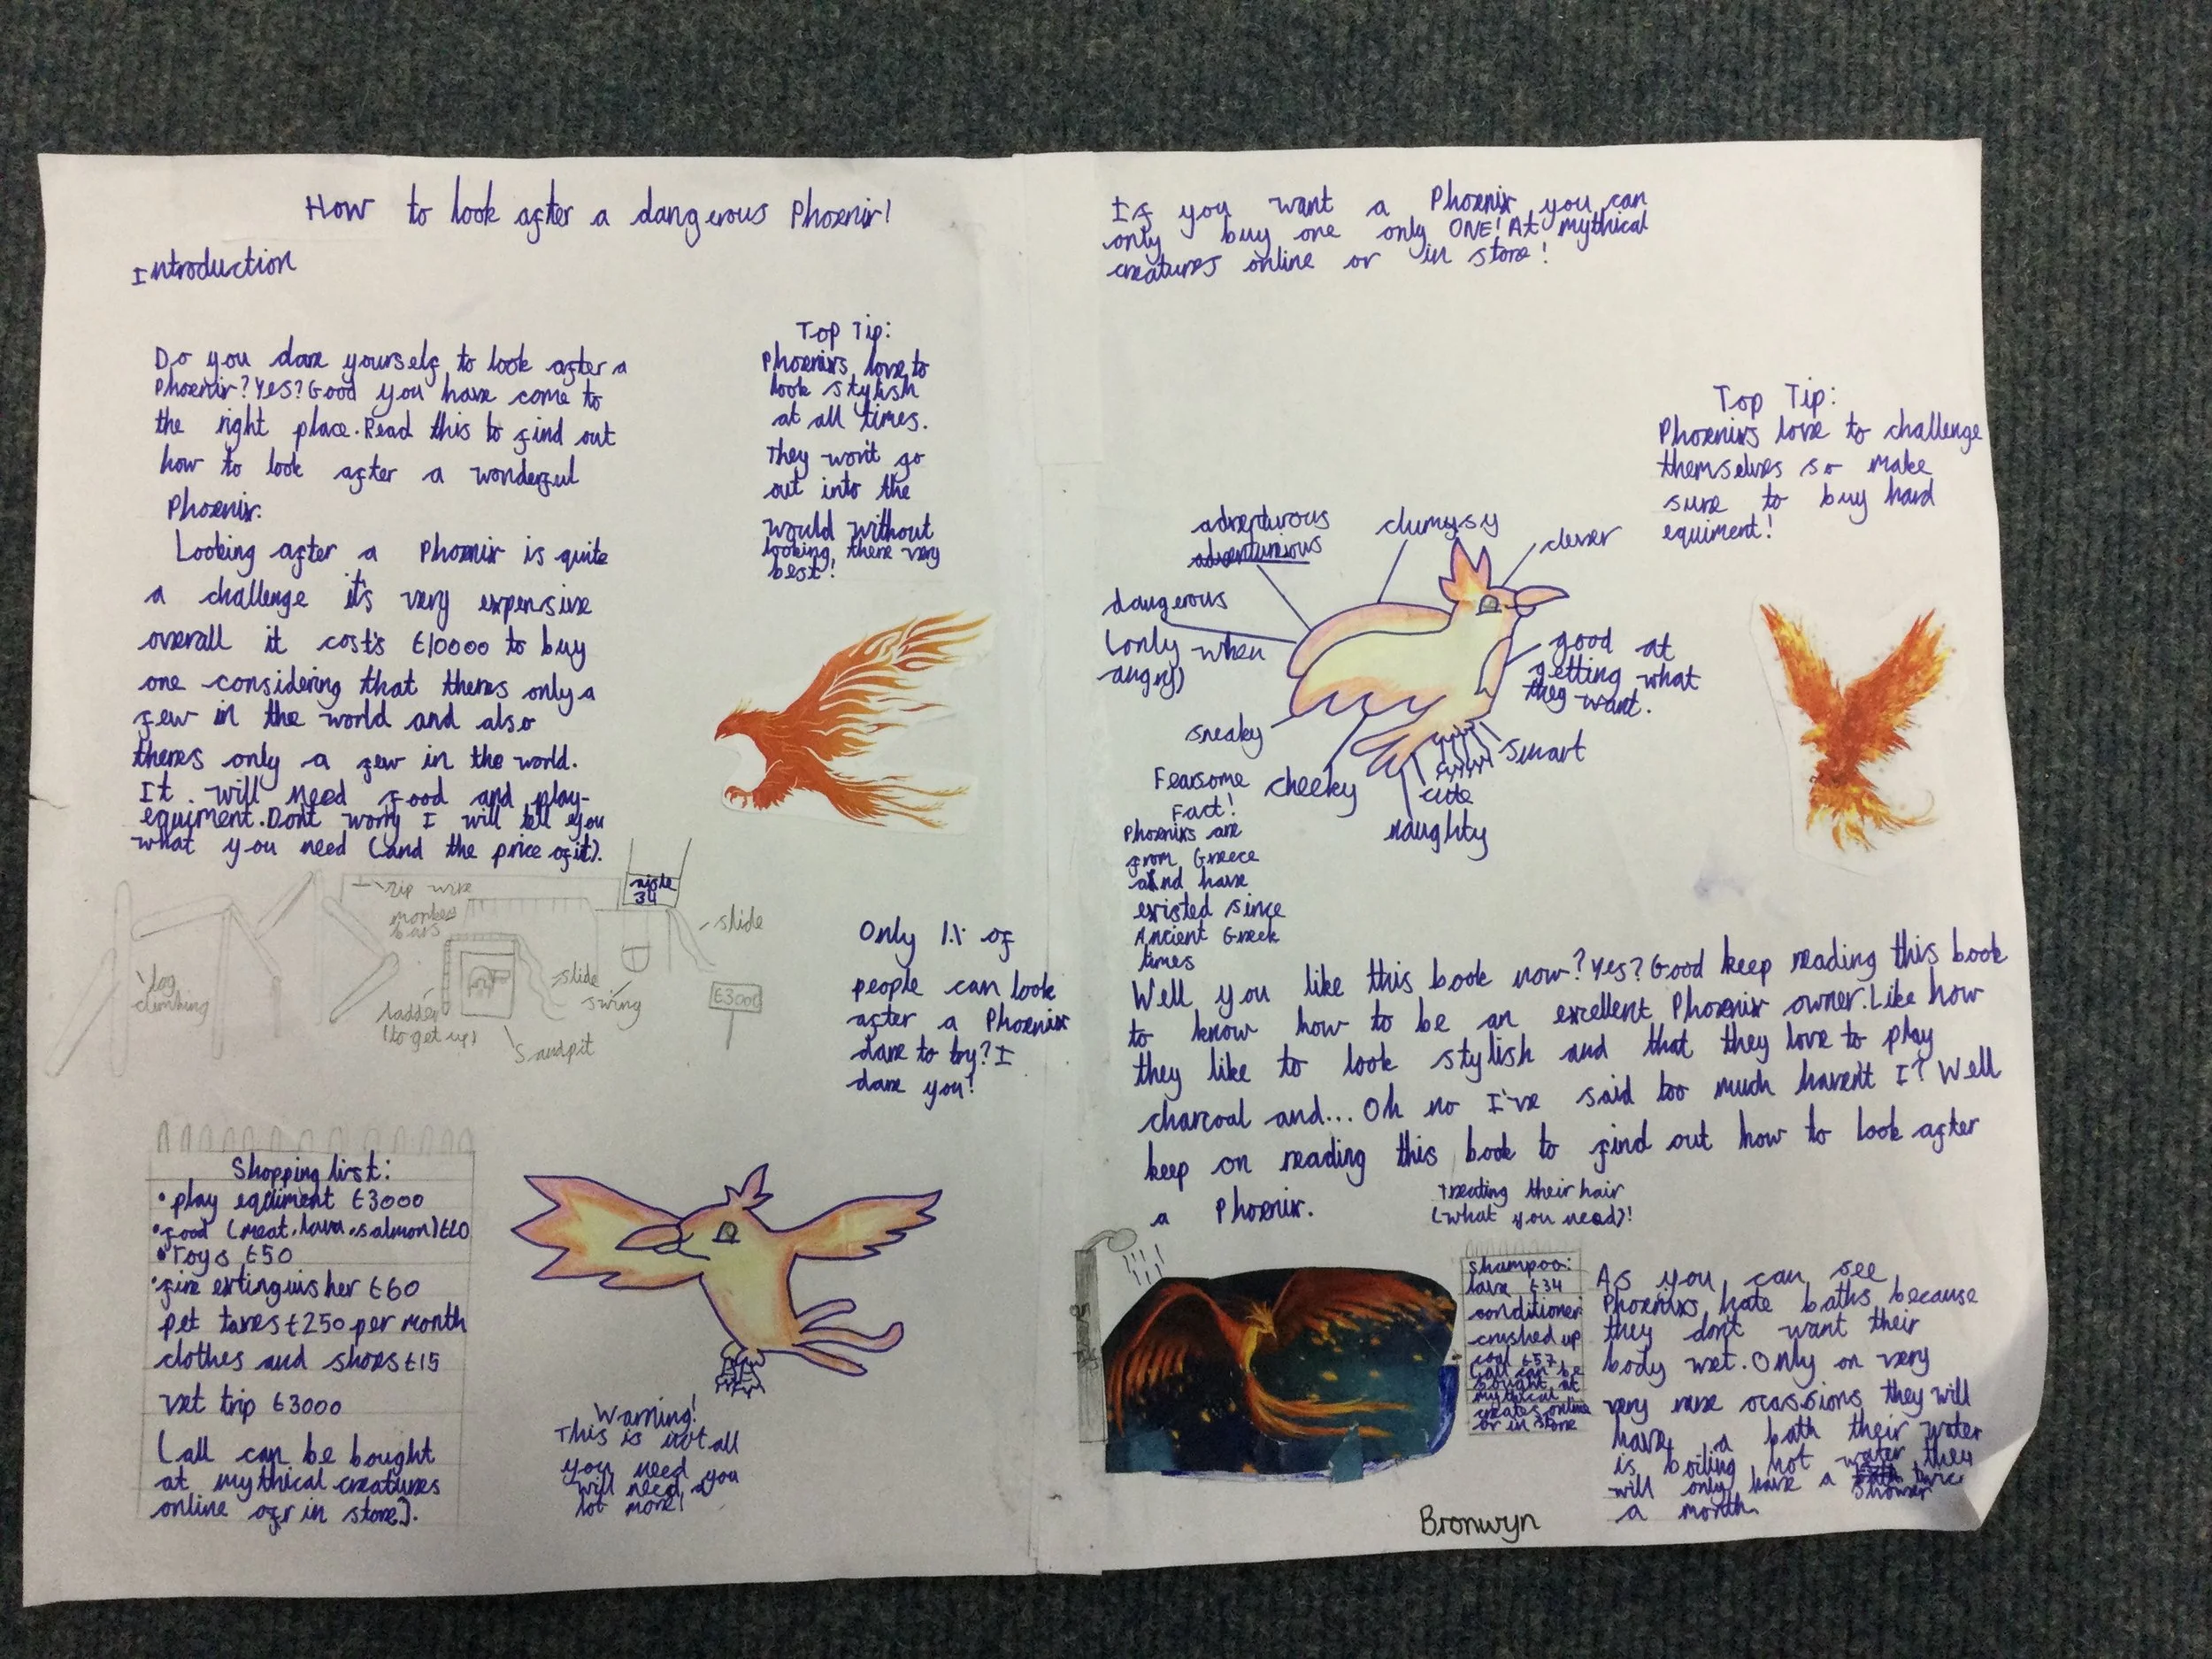 How to look after a dangerous Phoenix!
Introduction
Do you dare yourself to look after a
Phoenix? Yes? Good you have come to
the right place. Read this to find out
how to look after a wonderful
Phoenix.
Looking after a Phoenix is quite
a challenge it's very expensive
overall it cost's £10000 to buy
one considering that theres only a
few in the world and also
theres only a few in the world.
It will need food and play-
equiment. Dont worry I will tell you
what you need (and the price of it).
Top Tip:
Phoenixs love to
look stylish
at all times.
They won't go
out into the
would without
looking there very
best!
zip wire
monkey
bars
log
climbing
ladder
(to get up)
slide
swing
Sandpit
aisle
34
slide
£3000
Only 1% of
people can look
after a Phoenix
dare to try? I
dare you!
Shopping list:
• play equiment £3000
• food (meat, lava, salmon) £20
• Toys £50
• fire extinguisher £60
pet taxes £250 per month
clothes and shoes £15
vet trip £3000
(all can be bought
at mythical creatures
online ofr in store).
Warning!
This is not all
you need you
will need a
lot more!
If you want a Phoenix you can
only buy one only ONE! At mythical
creatures online or in store!
Top Tip:
Phoenixs love to challenge
themselves so make
sure to buy hard
equiment!
adventurous
clumysy
clever
dangerous
(only when
angry)
good at
getting what
they want.
sneaky
cheeky
naughty
cute
smart
Fearsome
Fact!
Phoenixs are
from Greece
and have
existed since
Ancient Greek
times
Well you like this book now? Yes? Good keep reading this book
to know how to be an excellent Phoenix owner. Like how
they like to look stylish and that they love to play
charcoal and... Oh no I've said too much haven't I? Well
keep on reading this book to find out how to look after
a Phoenix.
treating their hair
(what you need)!
shampoo:
lava £34
conditioner
crushed up
coal £57
(all can be
bought at
mythical
creates online
or in store
As you can see
Phoenixs hate baths because
they dont want their
body wet. Only on very
very rare ocassions they will
have a bath their water
is boiling hot water they
will only have a shower twice
a month.
Bronwyn